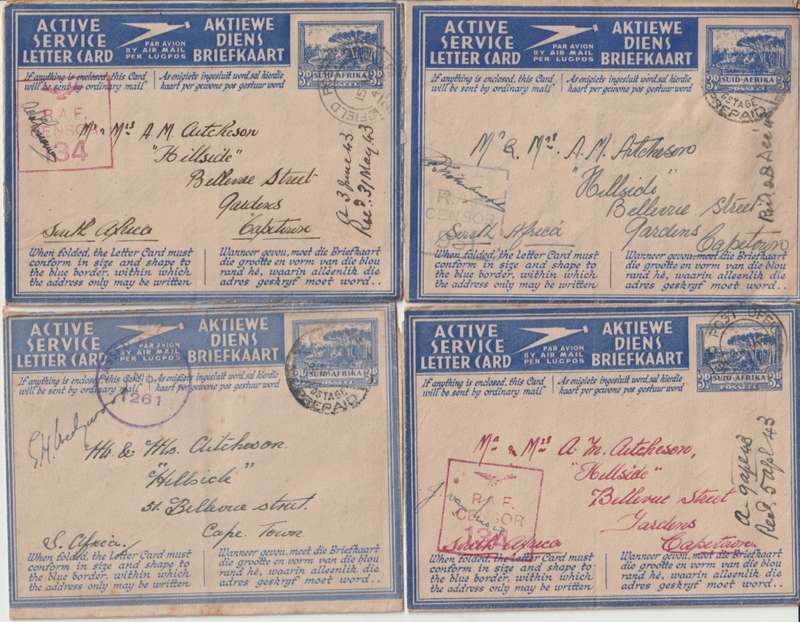 ACTIVE
SERVICE
LETTER CARD
PAR AVION
BY AIR MAIL
PER LUGPOS
AKTIEWE
DIENS
BRIEFKAART
SUID-AFRIKA
If anything is enclosed, this Card
will be sent by ordinary mail
As enigiets ingesluit word, sal hierdie
kaart per gewone pos gestuur word
R.A.F.
CENSOR
134
Mr & Mrs A. M. Aitcheson
"Hillside"
Bellevue Street
Gardens
Capetown
South Africa
a 3 June 43
Rec'd 31 May 43
When folded, the Letter Card must
conform in size and shape to
the blue border, within which
the address only may be written
Wanneer gevou, moet die Briefkaart
die grootte en vorm van die blou
rand hê, waarin alleenlik die
adres geskryf moet word..
ACTIVE
SERVICE
LETTER CARD
PAR AVION
BY AIR MAIL
PER LUGPOS
AKTIEWE
DIENS
BRIEFKAART
SUID-AFRIKA
POSTAGE
PREPAID
If anything is enclosed, this Card
will be sent by ordinary mail
As enigiets ingesluit word, sal hierdie
kaart per gewone pos gestuur word
CENSOR
Mr & Mrs. A. M. Aitcheson
"Hillside"
Bellevue Street
Gardens
Capetown
South Africa
When folded, the Letter Card must
conform in size and shape to
the blue border, within which
the address only may be written
Wanneer gevou, moet die Briefkaart
die grootte en vorm van die blou
rand hê, waarin alleenlik die
adres geskryf moet word..
ACTIVE
SERVICE
LETTER CARD
PAR AVION
BY AIR MAIL
PER LUGPOS
AKTIEWE
DIENS
BRIEFKAART
SUID-AFRIKA
POSTAGE
PREPAID
If anything is enclosed, this Card
will be sent by ordinary mail
As enigiets ingesluit word, sal hierdie
kaart per gewone pos gestuur word
261
Mr. & Mrs. Aitcheson
"Hillside"
Bellevue street.
Cape Town
S. Africa.
When folded, the Letter Card must
conform in size and shape to
the blue border, within which
the address only may be written
Wanneer gevou, moet die Briefkaart
die grootte en vorm van die blou
rand hê, waarin alleenlik die
adres geskryf moet word..
ACTIVE
SERVICE
LETTER CARD
PAR AVION
BY AIR MAIL
PER LUGPOS
AKTIEWE
DIENS
BRIEFKAART
POST OFFICE
SUID-AFRIKA
If anything is enclosed, this Card
will be sent by ordinary mail
As enigiets ingesluit word, sal hierdie
kaart per gewone pos gestuur word
R.A.F.
CENSOR
Mr & Mrs A. M. Aitcheson,
"Hillside"
Bellevue Street
Gardens
Capetown
South Africa
Rec'd. 5 Apl 43
When folded, the Letter Card must
conform in size and shape to
the blue border, within which
the address only may be written
Wanneer gevou, moet die Briefkaart
die grootte en vorm van die blou
rand hê, waarin alleenlik die
adres geskryf moet word..